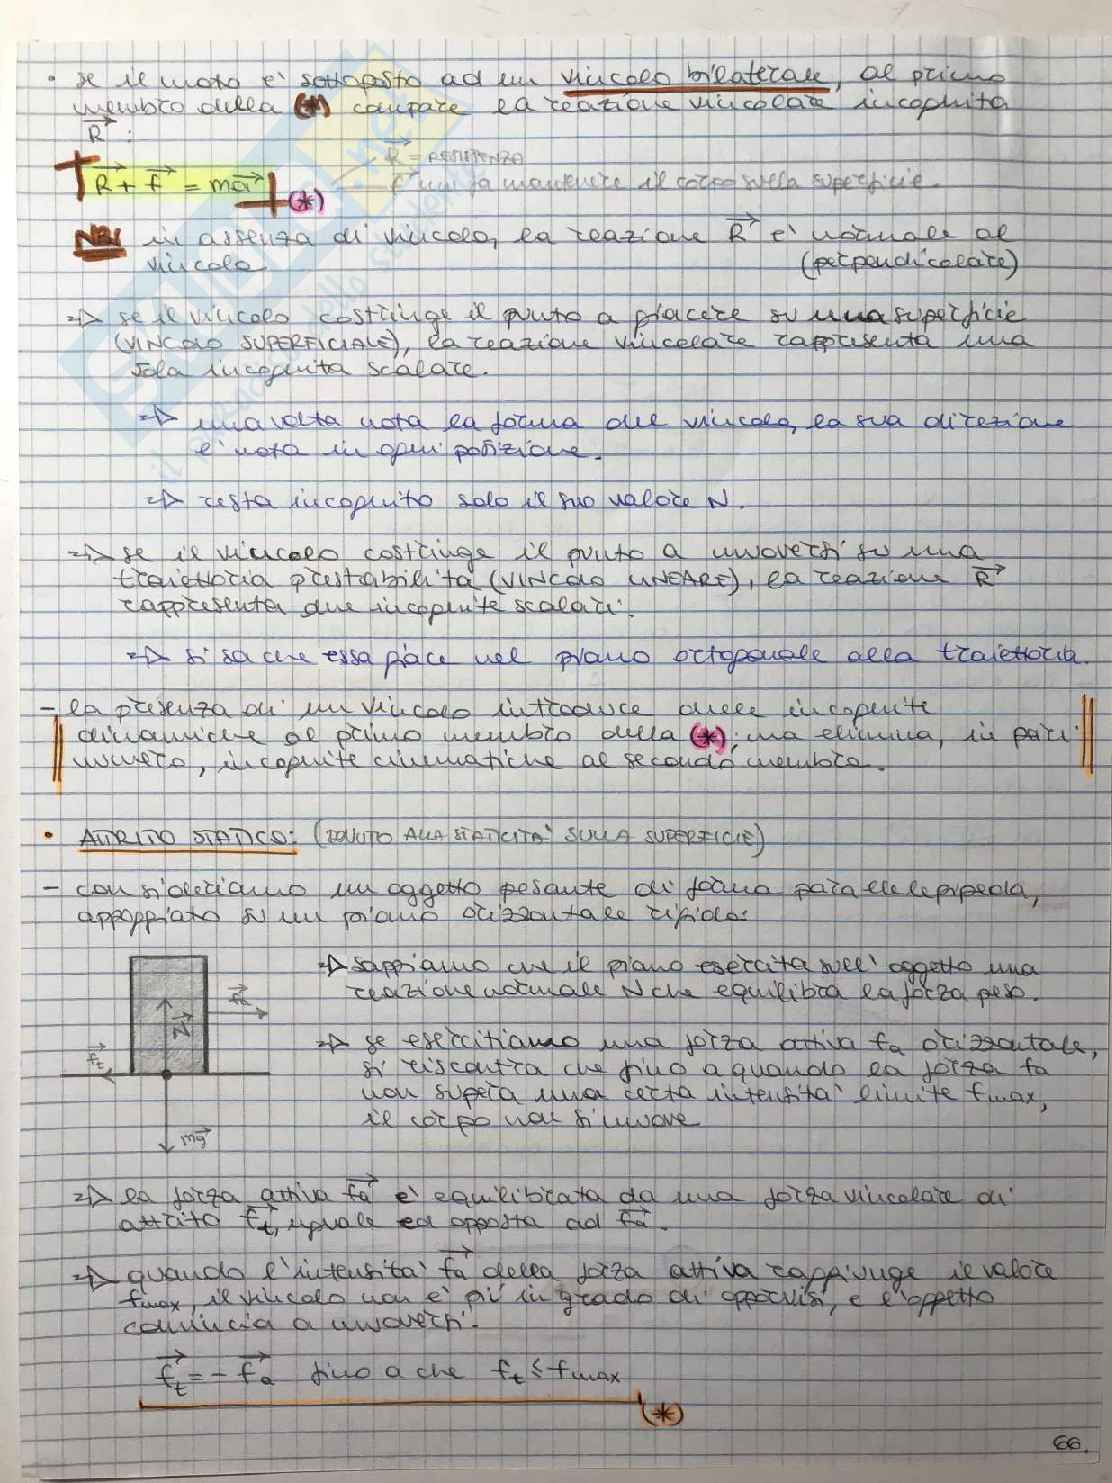 • se il moto è sottoposto ad un vincolo bilaterale, al primo
membro della (*) compare la reazione vincolare incognita
R:
R + f = ma (*)
R = RESISTENZA
mi fa mantenere il corpo sulla superficie.
NB: in assenza di vincolo, la reazione R è normale al
vincolo (perpendicolare)
=> se il vincolo costringe il punto a giacere su una superficie
(VINCOLO SUPERFICIALE), la reazione vincolare rappresenta una
sola incognita scalare.
=> una volta nota la forma del vincolo, la sua direzione
è nota in ogni posizione.
=> resta incognito solo il suo valore N.
=> se il vincolo costringe il punto a muoversi su una
traiettoria prestabilita (VINCOLO LINEARE), la reazione R
rappresenta due incognite scalari.
=> si sa che essa giace nel piano ortogonale alla traiettoria.
- la presenza di un vincolo introduce delle incognite
dinamiche al primo membro della (*); ma elimina, in pari
numero, incognite cinematiche al secondo membro.
• ATTRITO STATICO: (DOVUTO ALLA STATICITA' SULLA SUPERFICIE)
- consideriamo un oggetto pesante di forma parallelepipeda,
appoggiato su un piano orizzontale rigido:
=> sappiamo che il piano esercita sull'oggetto una
reazione normale N che equilibra la forza peso.
=> se esercitiamo una forza attiva fa orizzontale,
si riscontra che fino a quando la forza fa
non supera una certa intensità limite fmax,
il corpo non si muove
fa
N
ft
mg
=> la forza attiva fa è equilibrata da una forza vincolare di
attrito ft, uguale ed opposta ad fa.
=> quando l'intensità fa della forza attiva raggiunge il valore
fmax, il vincolo non è più in grado di opporvisi, e l'oggetto
comincia a muoversi.
ft = - fa fino a che ft ≤ fmax
(*)
66.